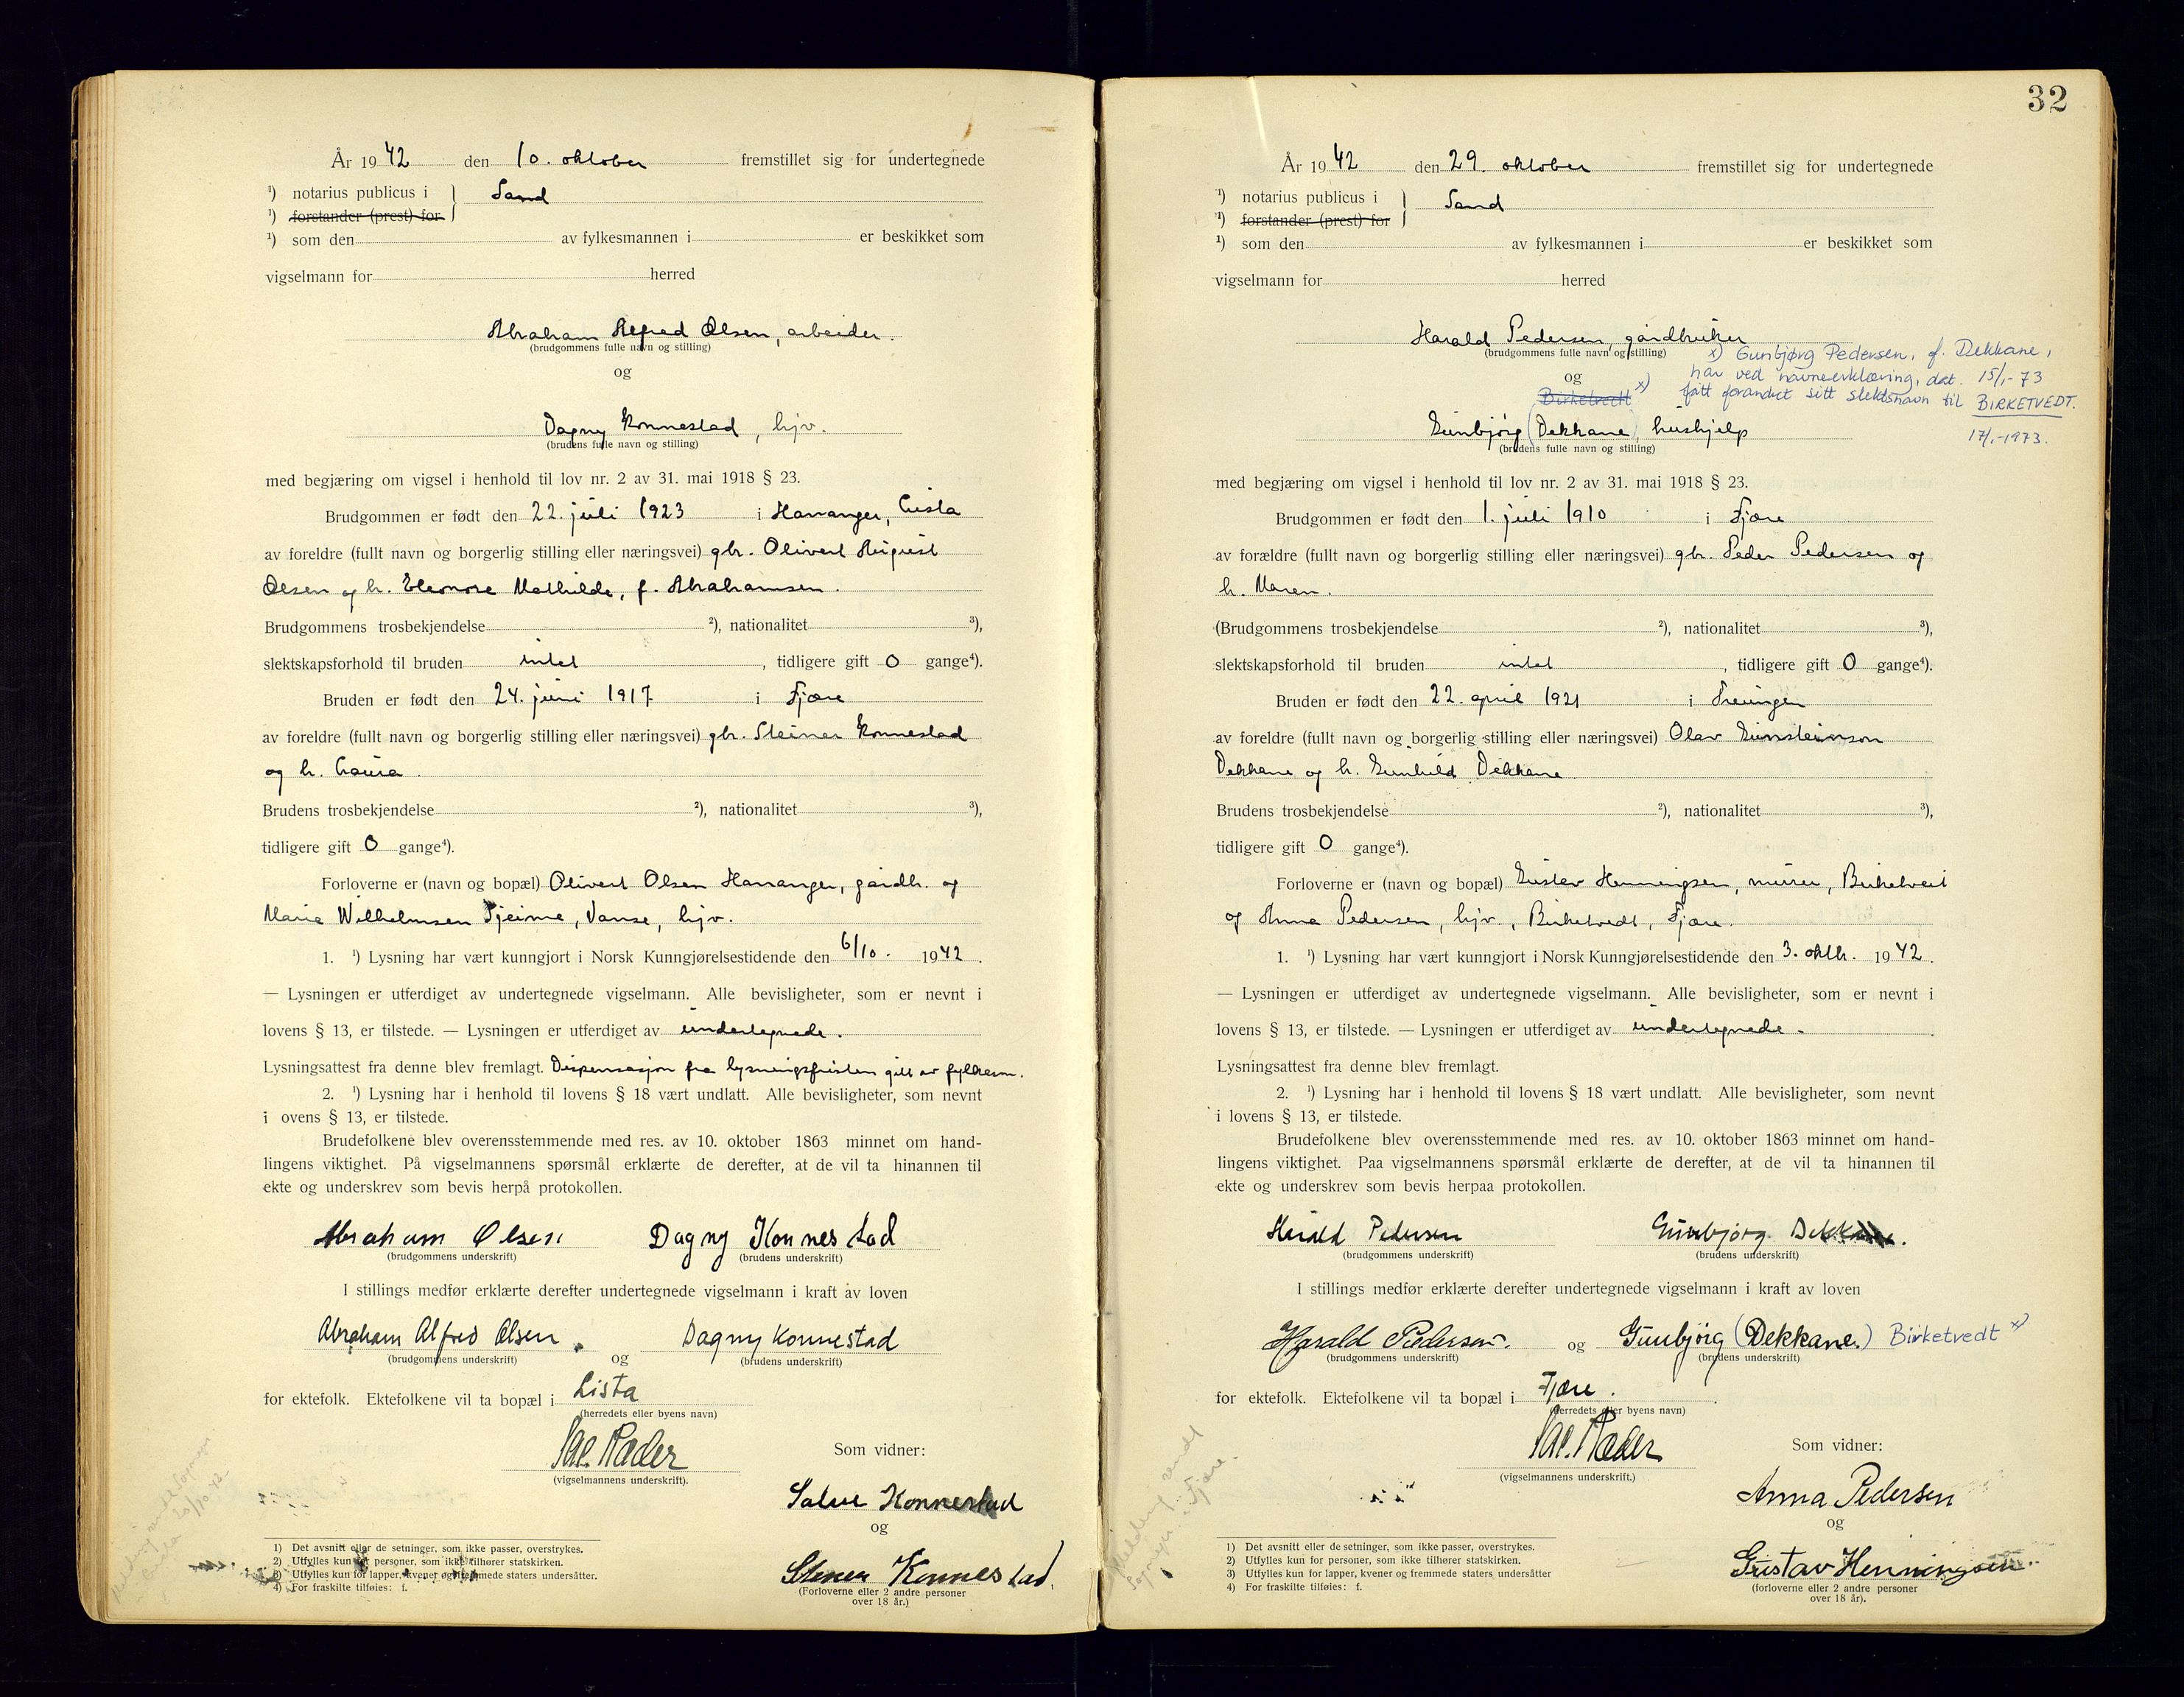 År 1942 den 10. oktober fremstillet sig for undertegnede
¹) notarius publicus i } Sand
¹) forstander (prest) for
¹) som den av fylkesmannen i er beskikket som
vigselmann for herred
Abraham Alfred Olsen, arbeider.
(brudgommens fulle navn og stilling)
og
Dagny Konnestad, hjv.
(brudens fulle navn og stilling)
med begjæring om vigsel i henhold til lov nr. 2 av 31. mai 1918 § 23.
Brudgommen er født den 22. juli 1923 i Hananger, Lista
av foreldre (fullt navn og borgerlig stilling eller næringsvei) gbr. Olivert August
Olsen og h. Eleonore Mathilde, f. Abrahamsen.
Brudgommens trosbekjendelse ²), nationalitet ³),
slektskapsforhold til bruden intet, tidligere gift 0 gange⁴).
Bruden er født den 24. juni 1917 i Fjære
av foreldre (fullt navn og borgerlig stilling eller næringsvei) gbr. Steiner Konnestad
og h. Laura.
Brudens trosbekjendelse ²), nationalitet ³),
tidligere gift 0 gange⁴).
Forloverne er (navn og bopæl) Olivert Olsen Hananger, gårdb. og
Marie Wilhelmsen Tjeime, Vanse, hjv.
1. ¹) Lysning har vært kunngjort i Norsk Kunngjørelsestidende den 6/10. 1942.
— Lysningen er utferdiget av undertegnede vigselmann. Alle bevisligheter, som er nevnt i
lovens § 13, er tilstede. — Lysningen er utferdiget av undertegnede.
Lysningsattest fra denne blev fremlagt. Dispensasjon fra lysningsfristen gitt av fylkesm.
2. ¹) Lysning har i henhold til lovens § 18 vært undlatt. Alle bevisligheter, som nevnt
i ovens § 13, er tilstede.
Brudefolkene blev overensstemmende med res. av 10. oktober 1863 minnet om hand-
lingens viktighet. På vigselmannens spørsmål erklærte de derefter, at de vil ta hinannen til
ekte og underskrev som bevis herpå protokollen.
Abraham Olsen Dagny Konnestad
(brudgommens underskrift) (brudens underskrift)
I stillings medfør erklærte derefter undertegnede vigselmann i kraft av loven
Abraham Alfred Olsen og Dagny Konnestad
(brudgommens underskrift) (brudens underskrift)
for ektefolk. Ektefolkene vil ta bopæl i Lista
(herredets eller byens navn)
Som vidner:
Vae. Ræder
(vigselmannens underskrift).
Salve Konnestad
og
Steiner Konnestad,
(Forloverne eller 2 andre personer
over 18 år.)
1) Det avsnitt eller de setninger, som ikke passer, overstrykes.
2) Utfylles kun for personer, som ikke tilhører statskirken.
3) Utfylles kun for lapper, kvener og fremmede staters undersåtter.
4) For fraskilte tilføies: f.
32
År 1942 den 29. oktober fremstillet sig for undertegnede
¹) notarius publicus i } Sand
¹) forstander (prest) for
¹) som den av fylkesmannen i er beskikket som
vigselmann for herred
Harald Pedersen, gårdbruker
(brudgommens fulle navn og stilling)
x) Gunbjørg Pedersen, f. Dekkane,
har ved navneerklæring, dat. 15/1-73
fått forandret sitt slektsnavn til BIRKETVEDT.
17/1-1973.
og
Birketvedt x)
Gunbjörg (Dekkane), hushjelp
(brudens fulle navn og stilling)
med begjæring om vigsel i henhold til lov nr. 2 av 31. mai 1918 § 23.
Brudgommen er født den 1. juli 1910 i Fjære
av forældre (fullt navn og borgerlig stilling eller næringsvei) gbr. Peder Pedersen og
h. Maren.
(Brudgommens trosbekjendelse ²), nationalitet ³),
slektskapsforhold til bruden intet, tidligere gift 0 gange⁴).
Bruden er født den 22. april 1921 i Treungen
av foreldre (fullt navn og borgerlig stilling eller næringsvei) Olav Gunsteinson
Dekkane og h. Gunhild Dekkane.
Brudens trosbekjendelse ²), nationalitet ³),
tidligere gift 0 gange⁴).
Forloverne er (navn og bopæl) Gustav Henningsen, murer, Birketveit
og Anna Pedersen, hjv., Birketvedt, Fjære.
1. ¹) Lysning har vært kunngjort i Norsk Kunngjørelsestidende den 3. oktb. 1942.
— Lysningen er utferdiget av undertegnede vigselmann. Alle bevisligheter, som er nevnt i
lovens § 13, er tilstede. — Lysningen er utferdiget av undertegnede.
Lysningsattest fra denne blev fremlagt.
2. ¹) Lysning har i henhold til lovens § 18 vært undlatt. Alle bevisligheter, som nevnt
i lovens § 13, er tilstede.
Brudefolkene blev overensstemmende med res. av 10. oktober 1863 minnet om hand-
lingens viktighet. Paa vigselmannens spørsmål erklærte de derefter, at de vil ta hinannen til
ekte og underskrev som bevis herpaa protokollen.
Harald Pedersen Gunbjørg Dekkane.
(brudgommens underskrift) (brudens underskrift)
I stillings medfør erklærte derefter undertegnede vigselmann i kraft av loven
Harald Pedersen. og Gunbjörg (Dekkane.) Birketvedt x)
(brudgommens underskrift) (brudens underskrift)
for ektefolk. Ektefolkene vil ta bopæl i Fjære.
(herredets eller byens navn)
Som vidner:
Vae. Ræder
(vigselmannens underskrift.)
Anna Pedersen
og
Gustav Henningsen.
(forloverne eller 2 andre personer
over 18 år).
Melding sendt
sogнepr. i Fjære.
1) Det avsnitt eller de setninger, som ikke passer, overstrykes.
2) Utfylles kun for personer, som ikke tilhører statskirken.
3) Utfylles kun for lapper, kvener og fremmede staters undersåtter
4) For fraskilte tilføies: f.